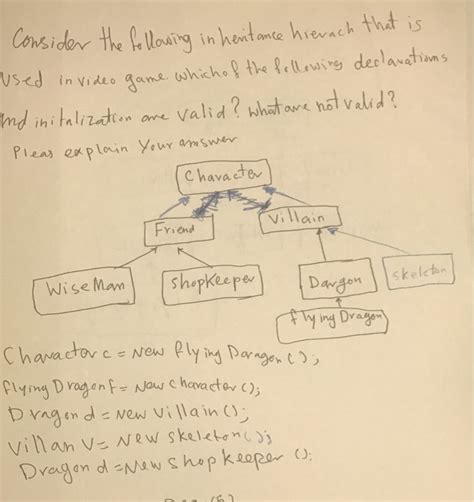 Consider the following inheritance hierach that is
used in video game which of the following declarations
and initalization are valid? what are not valid?
Pleas explain Your answer
Character
Friend
Villain
Wise Man
shopKeeper
Dargon
skeleton
flying Dragon
Charactor c = New flying Daragon();
flying Dragon f = New character();
Dragon d = New villain();
villan v = New skeleton();
Dragon d = New shop keeper ();